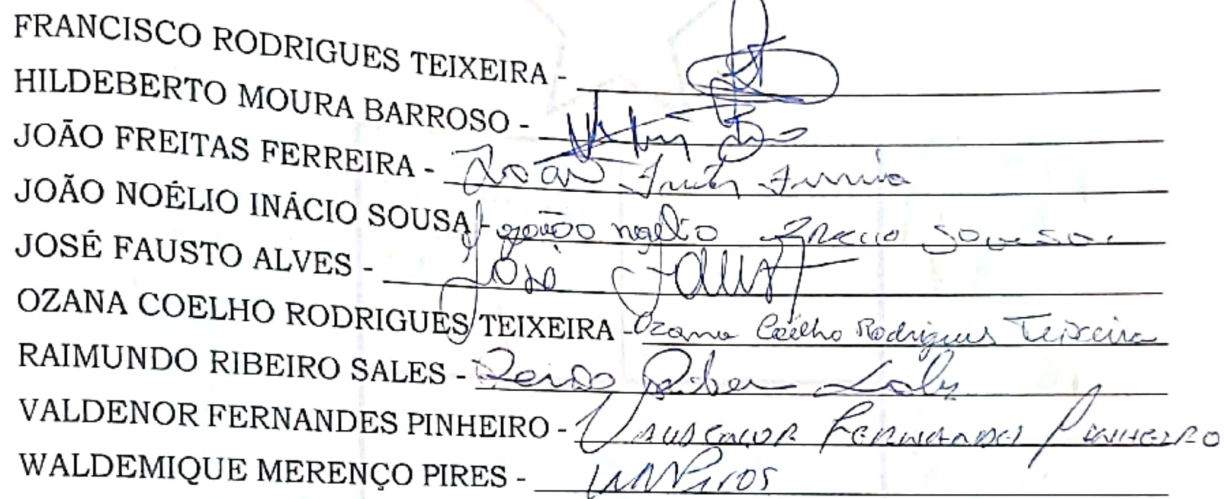 FRANCISCO RODRIGUES TEIXEIRA -
HILDEBERTO MOURA BARROSO -
JOÃO FREITAS FERREIRA - João
JOÃO NOÉLIO INÁCIO SOUSA - João Noélio Inácio Sousa.
JOSÉ FAUSTO ALVES - José Faust
OZANA COELHO RODRIGUES TEIXEIRA - Ozana Coêlho Rodrigues Teixeira
RAIMUNDO RIBEIRO SALES -
VALDENOR FERNANDES PINHEIRO - Valdenor Fernandes Pinheiro
WALDEMIQUE MERENÇO PIRES - WMPires